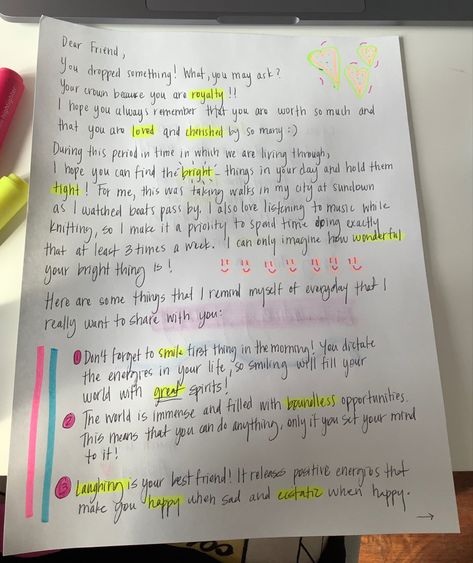 highlighter
Dear Friend,
You dropped something! What, you may ask?
Your crown because you are royalty!!
I hope you always remember that you are worth so much and
that you are loved and cherished by so many :)
During this period in time in which we are living through,
I hope you can find the bright things in your day and hold them
tight! For me, this was taking walks in my city at sundown
as I watched boats pass by. I also love listening to music while
knitting, so I make it a priority to spend time doing exactly
that at least 3 times a week. I can only imagine how wonderful
your bright thing is!
Here are some things that I remind myself of everyday that I
really want to share with you:
1 Don't forget to smile first thing in the morning! You dictate
the energies in your life, so smiling will fill your
world with great spirits!
2 The world is immense and filled with boundless opportunities.
This means that you can do anything, only if you set your mind
to it!
3 Laughing is your best friend! It releases positive energies that
make you happy when sad and ecstatic when happy.
→